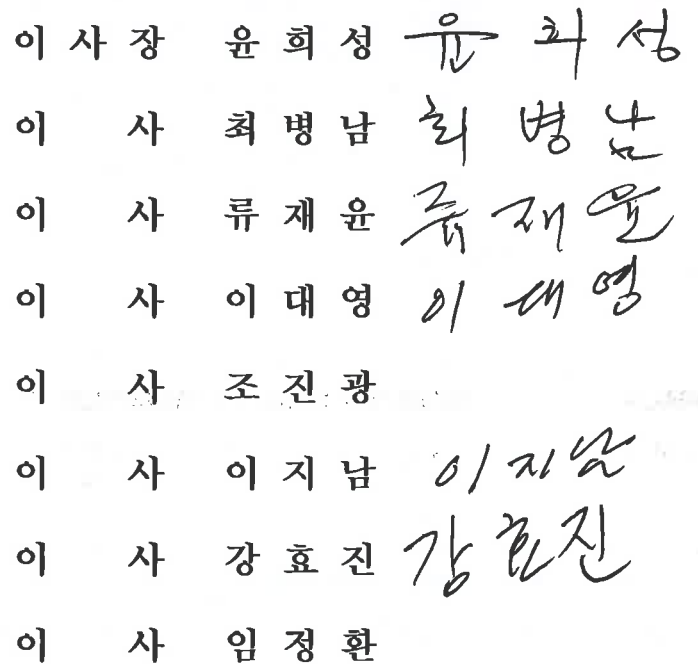 이 사 장 윤 희 성 윤 희 성
이 사 최 병 남 최 병 남
이 사 류 재 윤 류 재 윤
이 사 이 대 영 이 대 영
이 사 조 진 광
이 사 이 지 남 이 지 남
이 사 강 효 진 강 효 진
이 사 임 정 환